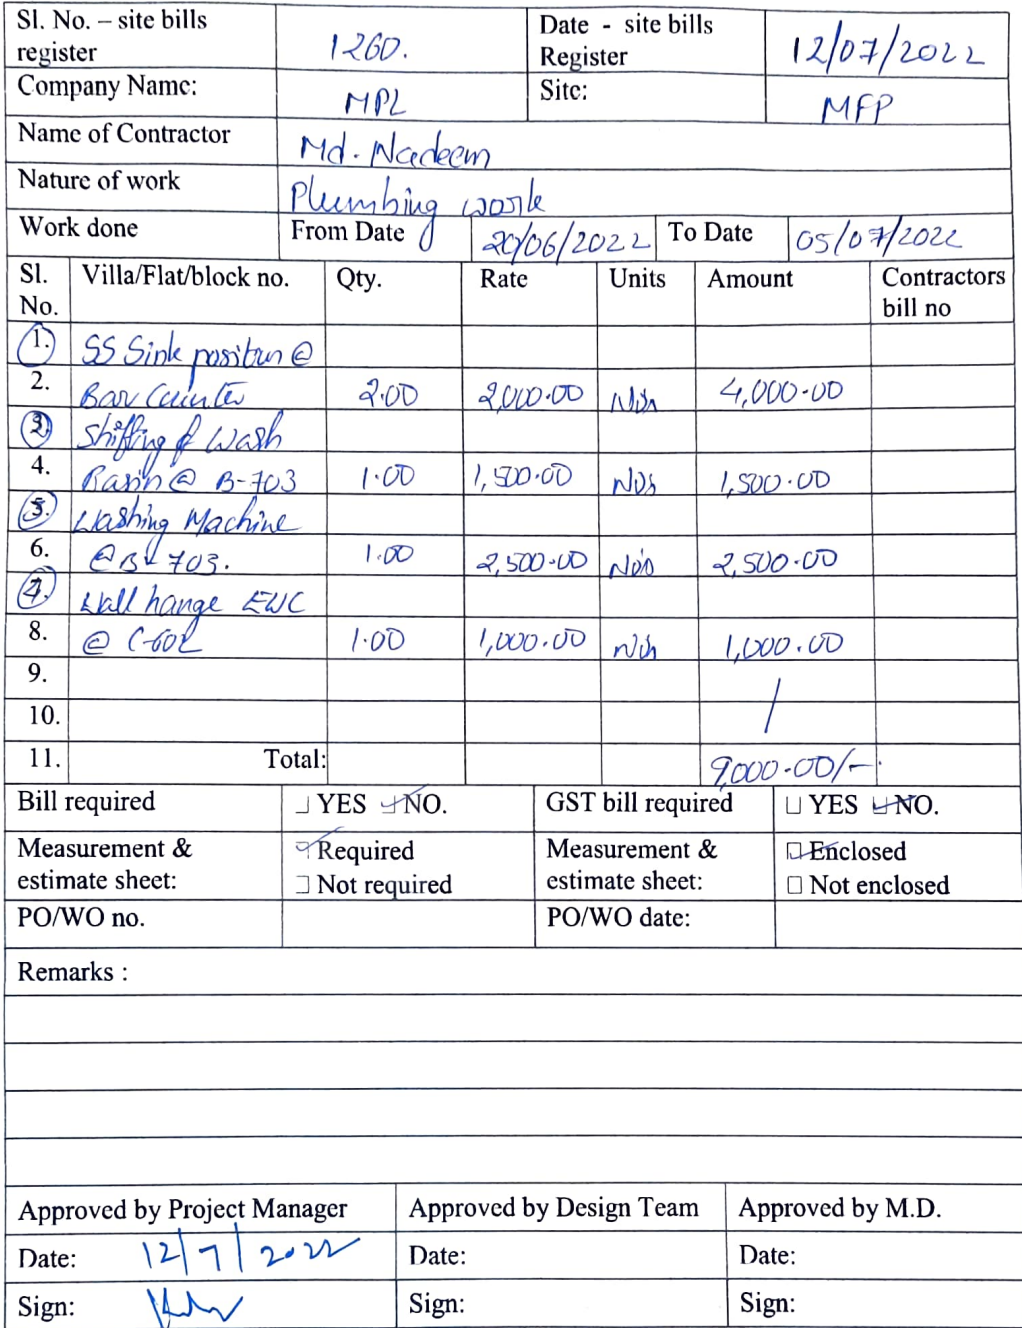 Sl. No. – site bills register 1260. Date - site bills Register 12/07/2022
Company Name: MPL Site: MFP
Name of Contractor Md. Nadeem
Nature of work Plumbing work
Work done From Date 20/06/2022 To Date 05/07/2022
Sl. No. Villa/Flat/block no. Qty. Rate Units Amount Contractors bill no
1. SS Sink position @
2. Bar Counter 2.00 2,000.00 Nos 4,000.00
3. Shifting of Wash
4. Basin @ B-703 1.00 1,500.00 Nos 1,500.00
5. Washing Machine
6. @ B-703. 1.00 2,500.00 Nos 2,500.00
7. Wall hange EWC
8. @ C-602 1.00 1,000.00 Nos 1,000.00
9.
10.
11. Total: 9,000.00/-
Bill required YES NO. GST bill required YES NO.
Measurement & estimate sheet: Required Not required Measurement & estimate sheet: Enclosed Not enclosed
PO/WO no. PO/WO date:
Remarks :
Approved by Project Manager Approved by Design Team Approved by M.D.
Date: 12/7/2022 Date: Date:
Sign: Sign: Sign: